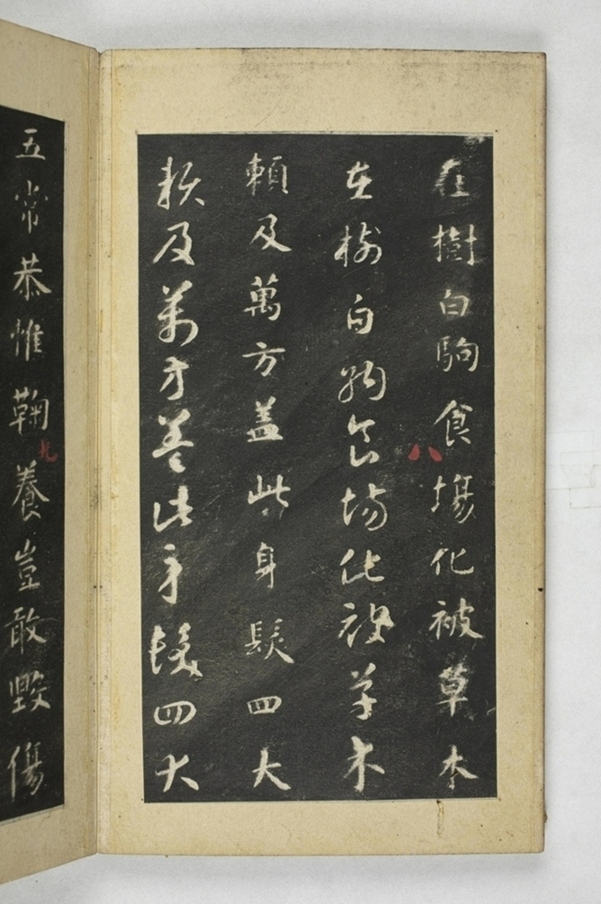 在樹白駒食場化被草木
在樹白駒食場化被草木
賴及萬方盖此身髮四大
賴及萬方盖此身髮四大
五常恭惟鞠養豈敢毀傷
八
九